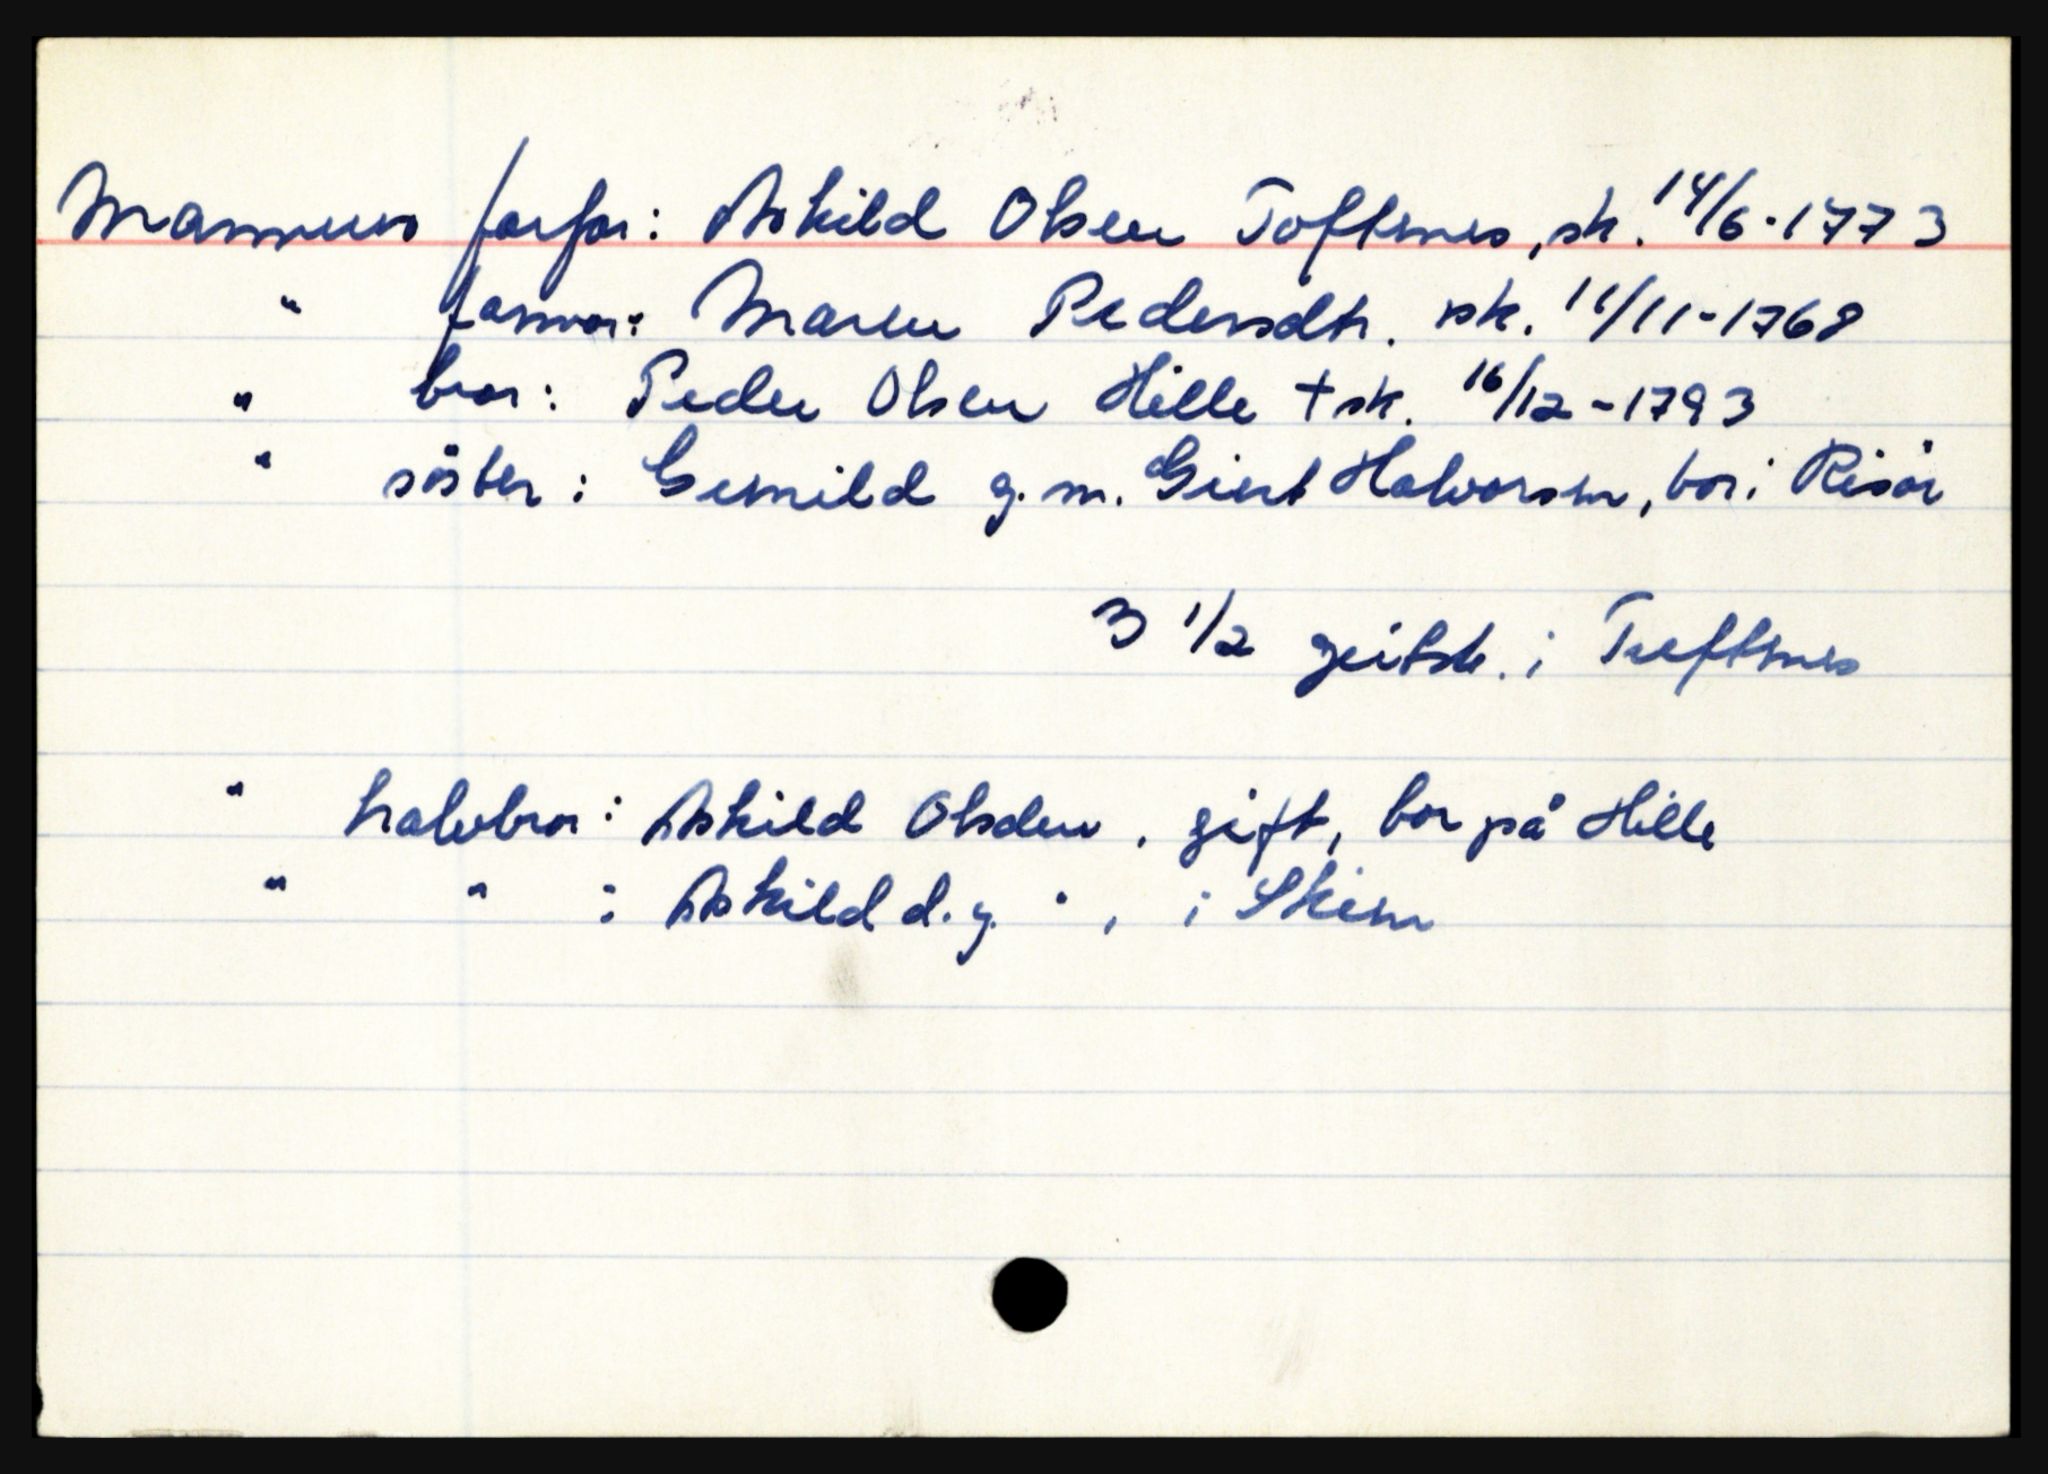 Mannens farfar: Askild Olsen Toftenes, sk. 14/6-1773
" farmor: Maren Pedersdtr. sk. 11/11-1768
" bror: Peder Olsen Hille + sk. 16/12-1793
" söster: Gunild g.m. Giert Halvorsen, bor i Risör
3 1/2 geitsk. i Tuftenes
" halvbror: Askild Olsden, gift, bor på Hille
" " : Askild d.y. " , i Skien